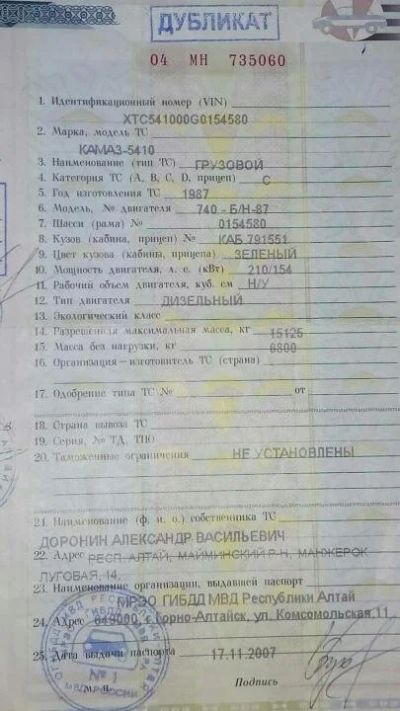 ДУБЛИКАТ
04 МН 735060
1. Идентификационный номер (VIN)
XTC541000G0154580
2. Марка, модель ТС
КАМАЗ-5410
3. Наименование (тип ТС) ГРУЗОВОЙ
4. Категория ТС (А, В, С, D, прицеп) С
5. Год изготовления ТС 1987
6. Модель, № двигателя 740 - Б/Н-87
7. Шасси (рама) № 0154580
8. Кузов (кабина, прицеп) № КАБ 791551
9. Цвет кузова (кабины, прицепа) ЗЕЛЕНЫЙ
10. Мощность двигателя, л. с. (кВт) 210/154
11. Рабочий объем двигателя, куб. см Н/У
12. Тип двигателя ДИЗЕЛЬНЫЙ
13. Экологический класс
14. Разрешенная максимальная масса, кг 15125
15. Масса без нагрузки, кг 6800
16. Организация – изготовитель ТС (страна)
17. Одобрение типа ТС № от
18. Страна вывоза ТС
19. Серия, № ТД, ТПО
20. Таможенные ограничения НЕ УСТАНОВЛЕНЫ
21. Наименование (ф. и. о.) собственника ТС
ДОРОНИН АЛЕКСАНДР ВАСИЛЬЕВИЧ
22. Адрес РЕСП. АЛТАЙ, МАЙМИНСКИЙ Р-Н, МАНЖЕРОК
ЛУГОВАЯ, 14,
23. Наименование организации, выдавшей паспорт
МРЭО ГИБДД МВД Республики Алтай
24. Адрес 649000, г. Горно-Алтайск, ул. Комсомольская,11
25. Дата выдачи паспорта 17.11.2007
М. П. Подпись
ГИБДД
№ 1
МВД РОССИИ